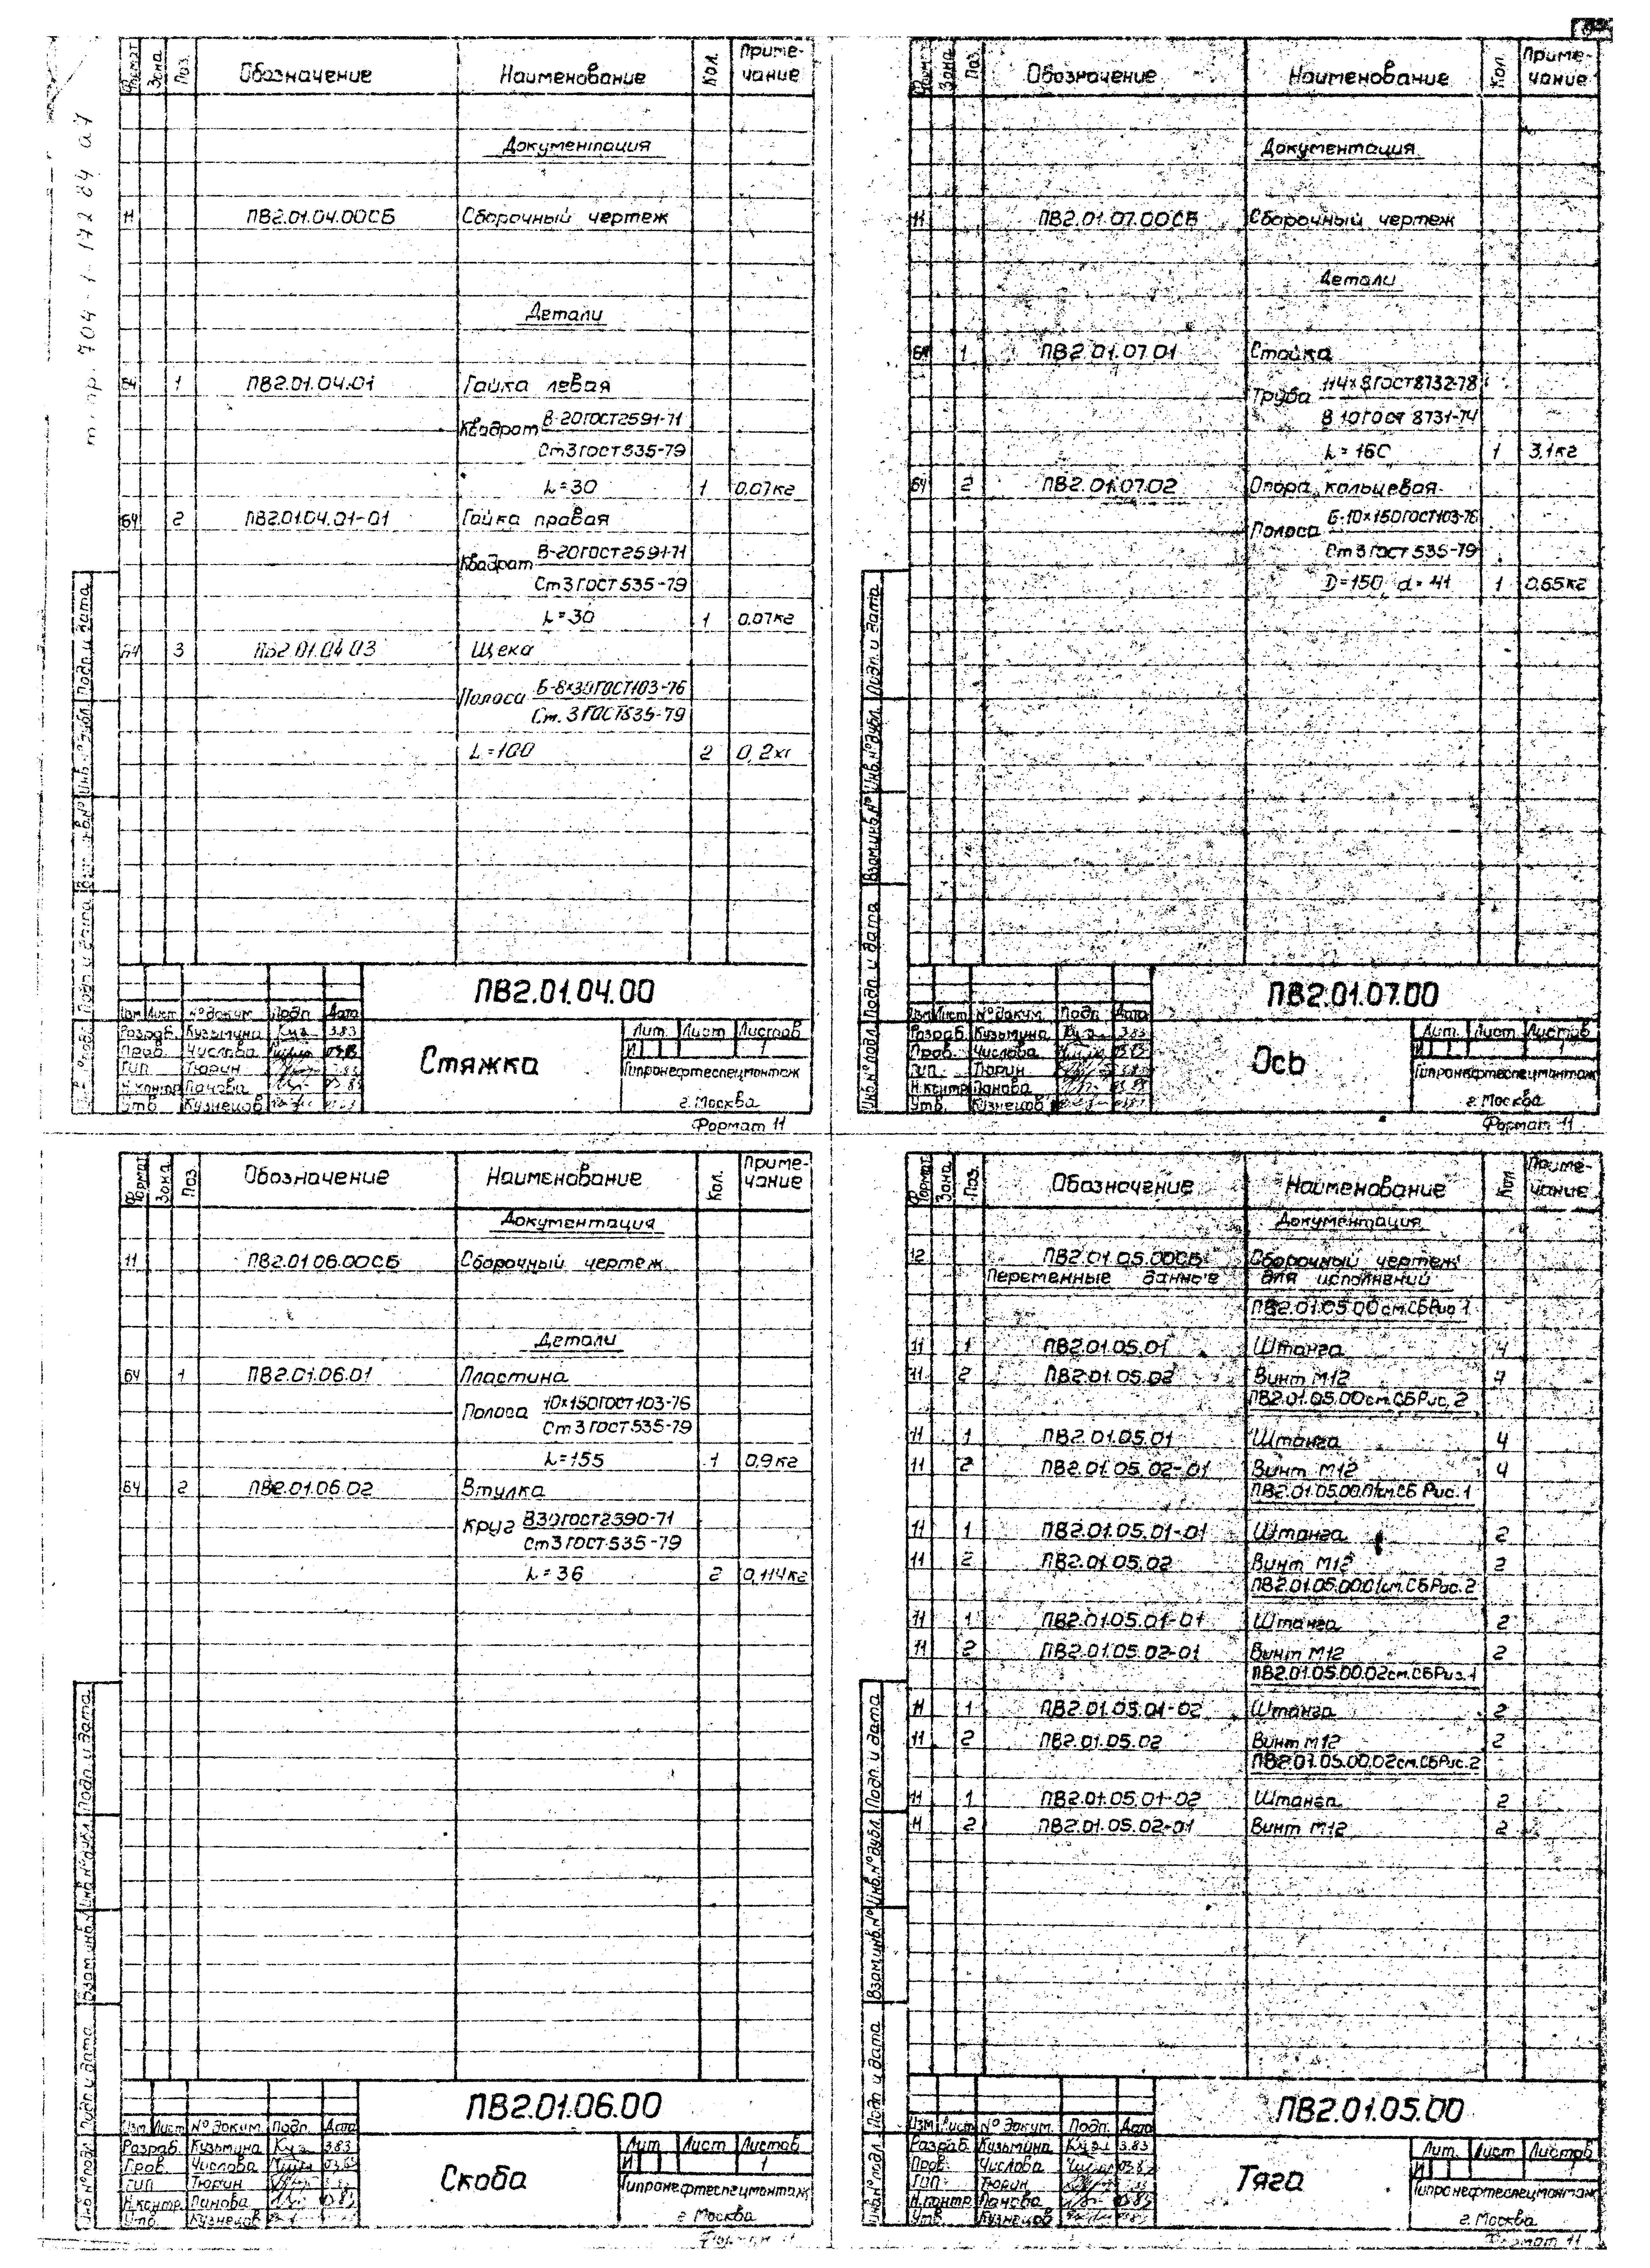 Формат Зона Поз. Обозначение Наименование Кол. Приме-
чание
Документация
11 ПВ2.01.04.00СБ Сборочный чертеж
Детали
БЧ 1 ПВ2.01.04.01 Гайка левая
Квадрат В-20ГОСТ2591-71
Ст3ГОСТ535-79
L=30 1 0,07кг
БЧ 2 ПВ2.01.04.01-01 Гайка правая
Квадрат В-20ГОСТ2591-71
Ст3ГОСТ535-79
L=30 1 0,07кг
БЧ 3 ПВ2.01.04.03 Щека
Полоса Б-8×30ГОСТ103-76
Ст.3ГОСТ535-79
L=100 2 0,2кг
Подп. и дата
Инв.№дубл.
Подп и дата
ПВ2.01.04.00
Изм Лист №докум. Подп Дата
Разраб. Кузьмина 3.83
Пров. Числова
ГИП Тюрин
Н.контр Панова
Утв. Кузнецов
Стяжка
Лит. Лист Листов
И 1
Гипронефтеспецмонтаж
г.Москва
Формат 11
Формат Зона Поз. Обозначение Наименование Кол. Приме-
чание
Документация
11 ПВ2.01.07.00СБ Сборочный чертеж
Детали
БЧ 1 ПВ2.01.07.01 Стойка
Труба 114×8ГОСТ8732-78
В 10ГОСТ 8731-74
L=160 1 3,1кг
БЧ 2 ПВ2.01.07.02 Опора кольцевая
Полоса Б-10×150ГОСТ103-76
Ст3ГОСТ535-79
D=150, d=41 1 0,65кг
Подп. и дата
Инв.№дубл.
Взам.инв.№
Подп. и дата
Инв.№подл.
ПВ2.01.07.00
Изм Лист №докум. Подп Дата
Разраб. Кузьмина 3.83
Пров. Числова
ГИП. Тюрин
Н.контр Панова
Утв. Кузнецов
Ось
Лит. Лист Листов
И 1
Гипронефтеспецмонтаж
г.Москва
Формат 11
Формат Зона Поз. Обозначение Наименование Кол. Приме-
чание
Документация
11 ПВ2.01.06.00СБ Сборочный чертеж
Детали
БЧ 1 ПВ2.01.06.01 Пластина
Полоса 10×150ГОСТ103-76
Ст3ГОСТ535-79
L=155 1 0,9кг
БЧ 2 ПВ2.01.06.02 Втулка
Круг В30ГОСТ2590-71
Ст3ГОСТ535-79
L=36 2 0,114кг
Подп. и дата
Инв.№дубл.
Взам.инв.№
Подп и дата
Инв.№подл.
ПВ2.01.06.00
Изм Лист №докум. Подп. Дата
Разраб. Кузьмина 3.83
Пров. Числова
ГИП Тюрин
Н.контр. Панова
Утв. Кузнецов
Скоба
Лит Лист Листов
И 1
Гипронефтеспецмонтаж
г Москва
Формат 11
Формат Зона Поз. Обозначение Наименование Кол Приме-
чание
Документация
12 ПВ2.01.05.00СБ Сборочный чертеж
Переменные данные для исполнений
ПВ2.01.05.00см.СБРис.1
11 1 ПВ2.01.05.01 Штанга 4
11 2 ПВ2.01.05.02 Винт М12 4
ПВ2.01.05.00см.СБРис.2
11 1 ПВ2.01.05.01 Штанга 4
11 2 ПВ2.01.05.02-01 Винт М12 4
ПВ2.01.05.00.01см.СБ Рис.1
11 1 ПВ2.01.05.01-01 Штанга 2
11 2 ПВ2.01.05.02 Винт М12 2
ПВ2.01.05.00.01см.СБРис.2
11 1 ПВ2.01.05.01-01 Штанга 2
11 2 ПВ2.01.05.02-01 Винт М12 2
ПВ2.01.05.00.02см.СБРис.1
11 1 ПВ2.01.05.01-02 Штанга 2
11 2 ПВ2.01.05.02 Винт М12 2
ПВ2.01.05.00.02см.СБРис.2
11 1 ПВ2.01.05.01-02 Штанга 2
11 2 ПВ2.01.05.02-01 Винт М12 2
Подп. и дата
Инв.№дубл.
Взам.инв.№
Подп и дата
Инв.№подл.
ПВ2.01.05.00
Изм Лист №докум. Подп. Дата
Разраб. Кузьмина 3.83
Пров. Числова
ГИП Тюрин
Н.контр Панова
Утв. Кузнецов
Тяга
Лит. Лист Листов
И 1
Гипронефтеспецмонтаж
г.Москва
Формат 11